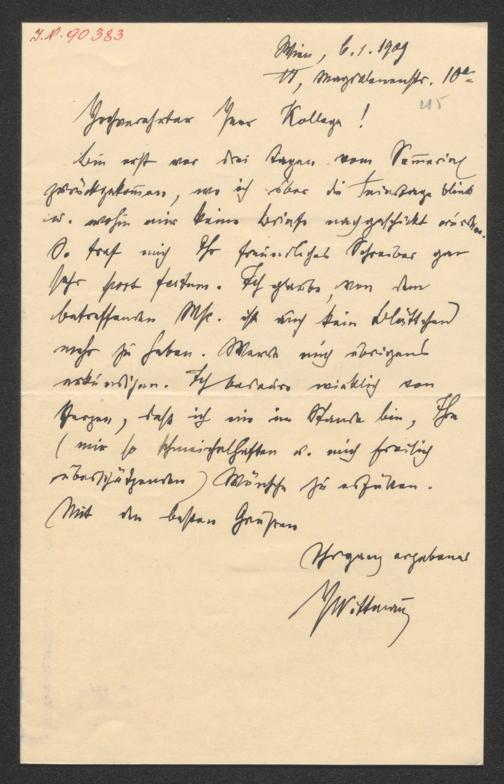 J.N. 90383
Wien, 6.1.1909
VI, Magdalenenstr. 10
215
Hochverehrter Herr Kollega!
Bin erst vor drei Tagen vom Semmering
zurückgekommen, wo ich über die Feiertage blieb
u. wohin mir keine Briefe nachgeschickt wurden.
So traf mich Ihr freundliches Schreiben gar
sehr post festum. Ich glaube, von dem
betreffenden Msc. ist auch kein Blättchen
mehr zu haben. Werde mich übrigens
erkundigen. Ich bedaure wirklich von
Herzen, daß ich nie im Stande bin, Ihre
(mir so schmeichelhaften u. mich freilich
überschätzenden) Wünsche zu erfüllen.
Mit den besten Grüßen
Ihr ganz ergebener
HWittmann